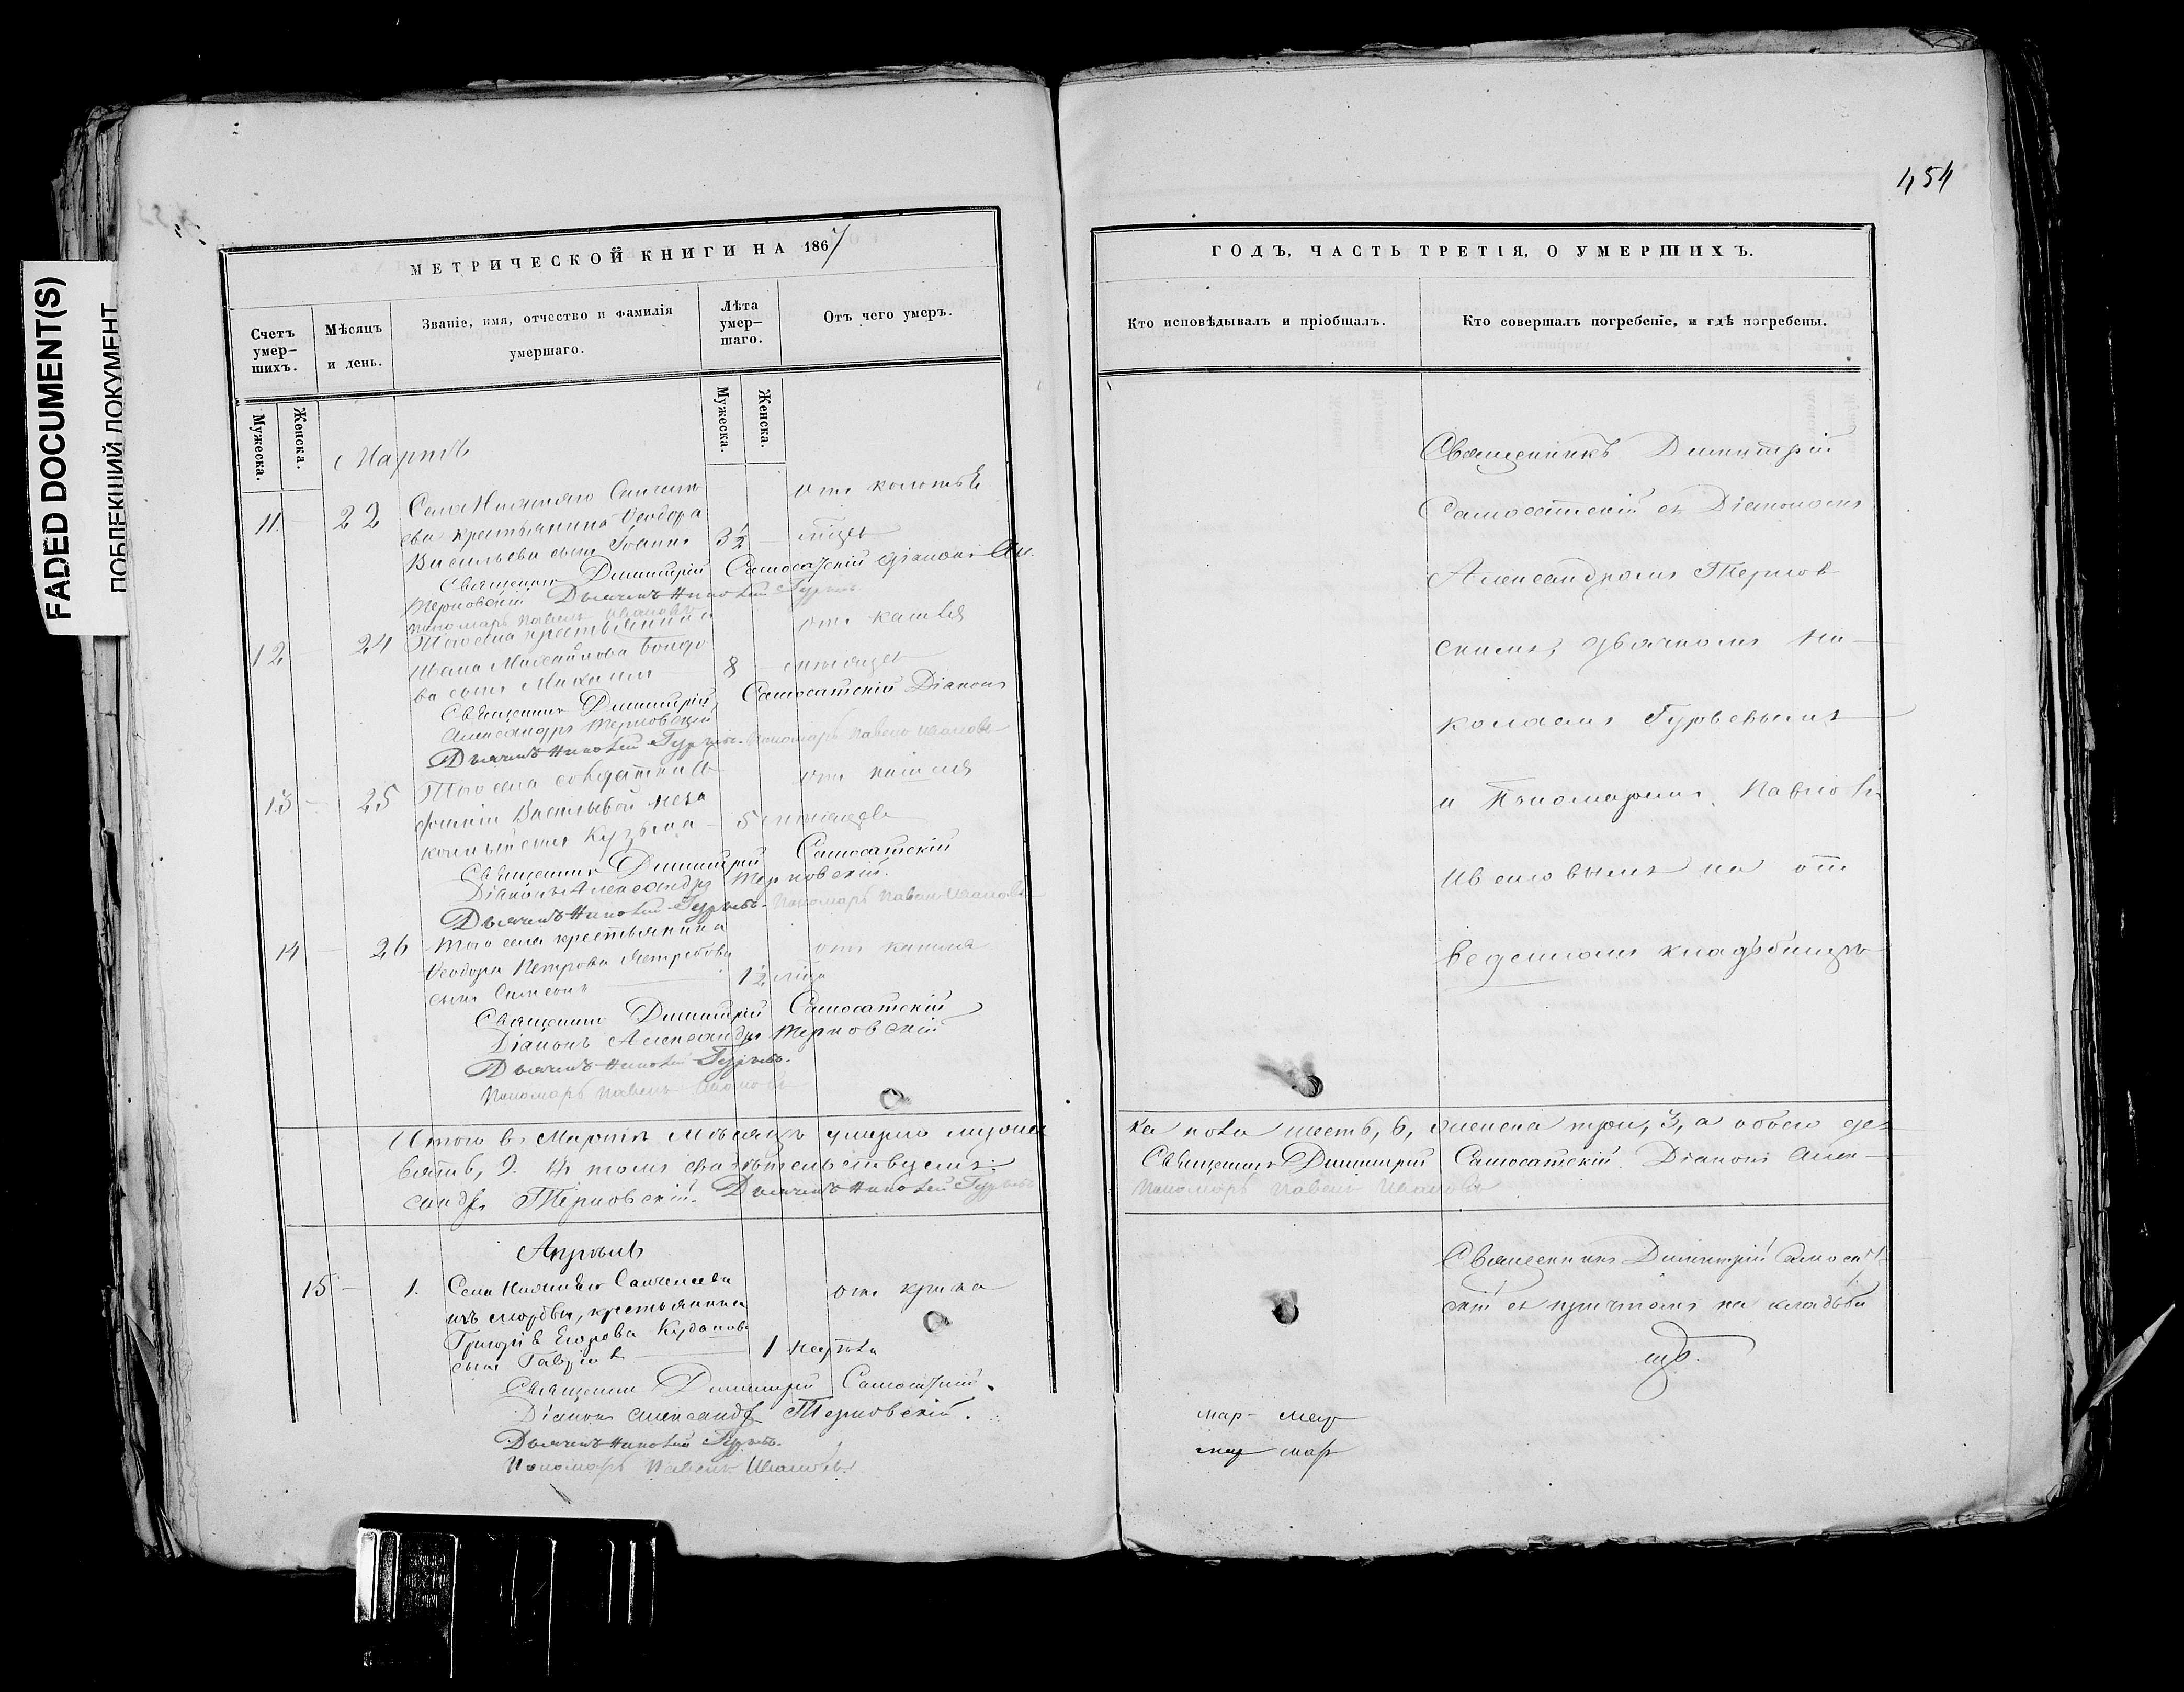 454
FADED DOCUMENT(S)
ПОБЛЕКШИЙ ДОКУМЕНТ
МЕТРИЧЕСКОЙ КНИГИ НА 1867
Счетъ умер-шихъ.
Мѣсяцъ и день.
Званіе, имя, отчество и фамилія умершаго.
Лѣта умер-шаго.
Отъ чего умеръ.
Мужеска.
Женска.
Мужеска.
Женска.
Мартъ
11. 22 Села отъ
ева крестьянина Ѳеодора
Васильева сынъ Іоаннъ 3½
Священникъ Димитрій Самосатскій Діаконъ Ал.
Терновскій Дьячекъ Николай Гурьевъ
Пономарь Павелъ Ивановъ
12 24 Того села крестьянина отъ кашля
Ивана
ва сынъ Михаилъ 8 мѣсяцев
Священникъ Димитрій Самосатскій Діаконъ
Александръ Терновскій
Дьячекъ Николай Гурьевъ. Пономарь Павелъ Ивановъ
13 25 Того села солдатки отъ кашля
Васильевой неза
коный сынъ Кузьма 5 мѣсяцев
Священникъ Димитрій Самосатскій
Діаконъ Александръ Терновскій.
Дьячекъ Николай Гурьевъ. Пономарь Павелъ Ивановъ
14 26 Того села крестьянина отъ кашля
Ѳеодора Петрова Ястребова
сынъ Симеонъ 1½ года
Священникъ Димитрій Самосатскій
Діаконъ Александръ Терновскій
Дьячекъ Николай Гурьевъ.
Пономарь Павелъ Ивановъ
Итого въ Мартѣ мѣсяцѣ умерло мужес
вять, 9. Въ томъ свидѣтельствуемъ:
сандръ Терновскій. Дьячекъ Николай Гурьевъ
Апрѣль
15 1. Села
изъ мордвы, крестьянина отъ крика
Григорія Егорова
сынъ Гавріил 1 недѣли
Священникъ Димитрій Самосатскій.
Діаконъ Александръ Терновскій.
Дьячекъ Николай Гурьевъ.
Пономарь Павелъ Ивановъ
ГОДЪ, ЧАСТЬ ТРЕТІЯ, О УМЕРШИХЪ.
Кто исповѣдывалъ и пріобщалъ.
Кто совершалъ погребеніе, и гдѣ погребены.
Священникъ Димитрій
Самосатскій съ Діакономъ
Александромъ Тернов
скимъ, дьячкомъ Ни-
колаемъ Гурьевымъ
и Пономаремъ Павло
Ивановымъ на от
веденномъ кладбищѣ
ка пола шесть, 6, женска три, 3, а обоего де-
Священникъ Димитрій Самосатскій Діаконъ Алек-
Пономарь Павелъ Ивановъ
Священникъ Димитрій Самосат-
скій съ причтомъ на кладби
щѣ.